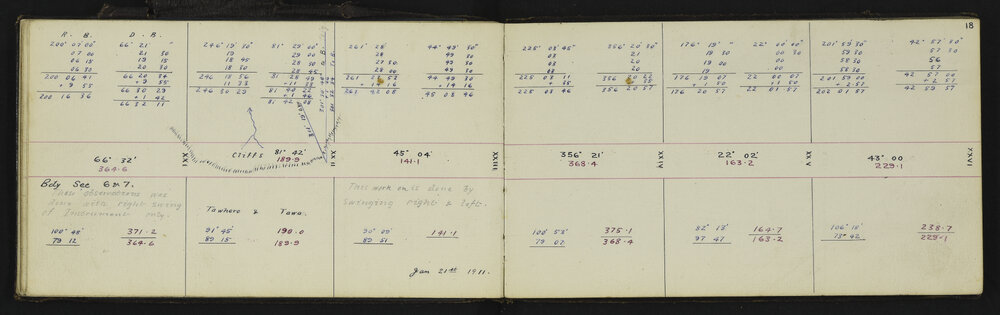 18
R. B. D. B.
200° 07' 00" 66° 21' "
07 00 21 30
06 15 19 15
06 30 20 30
200 06 41 66 20 34
+ 9 55 + 9 55
200 16 36 66 30 29
+ 1 42
66 32 11
246° 19' 30" 81° 29' 00"
19 29 00
18 45 28 30
18 30 28 45
246 18 56
11 33
246 30 29
81 42
261° 28' 44° 49' 30"
28 49 30
27 50 49 30
28 00 49 30
261 44 49 30
+ 14 16 + 14 16
261 42 08 45 03 46
225° 03' 45" 356° 20' 30"
03 21
03 20
03 20
225 03 11 356 20 22
225 03 46 356 20 57
176° 19' " 22° 00' 00"
19 00 30
19 00
19 00
176 19 07 22 00 07
176 20 57 22 01 57
201° 59' 30" 42° 57' 30"
59 30 57 30
58 30 56
58 30 57
201 59 00 42 57 00
+ 2 57 + 2 57
202 01 57 42 59 57
Cliffs
66° 32'
364.6
XXI
81° 42'
189.9
XXII
45° 04'
141.1
XXIII
356° 21'
368.4
XXIV
22° 02'
163.2
XXV
43° 00
229.1
XXVI
Bdy See 6 & 7.
These observations are
done with right swing
of Instrument only.
100° 48' 371.2
79 12 364.6
Tawhero & Tawa.
91° 45' 190.0
89 15 189.9
This work on is done by
swinging right & left.
90° 09' 141.1
89 51
Jan 21st 1911.
100° 53' 375.1
79 07 368.4
82° 13' 164.7
97 47 163.2
106° 18' 238.7
73° 42 229.1